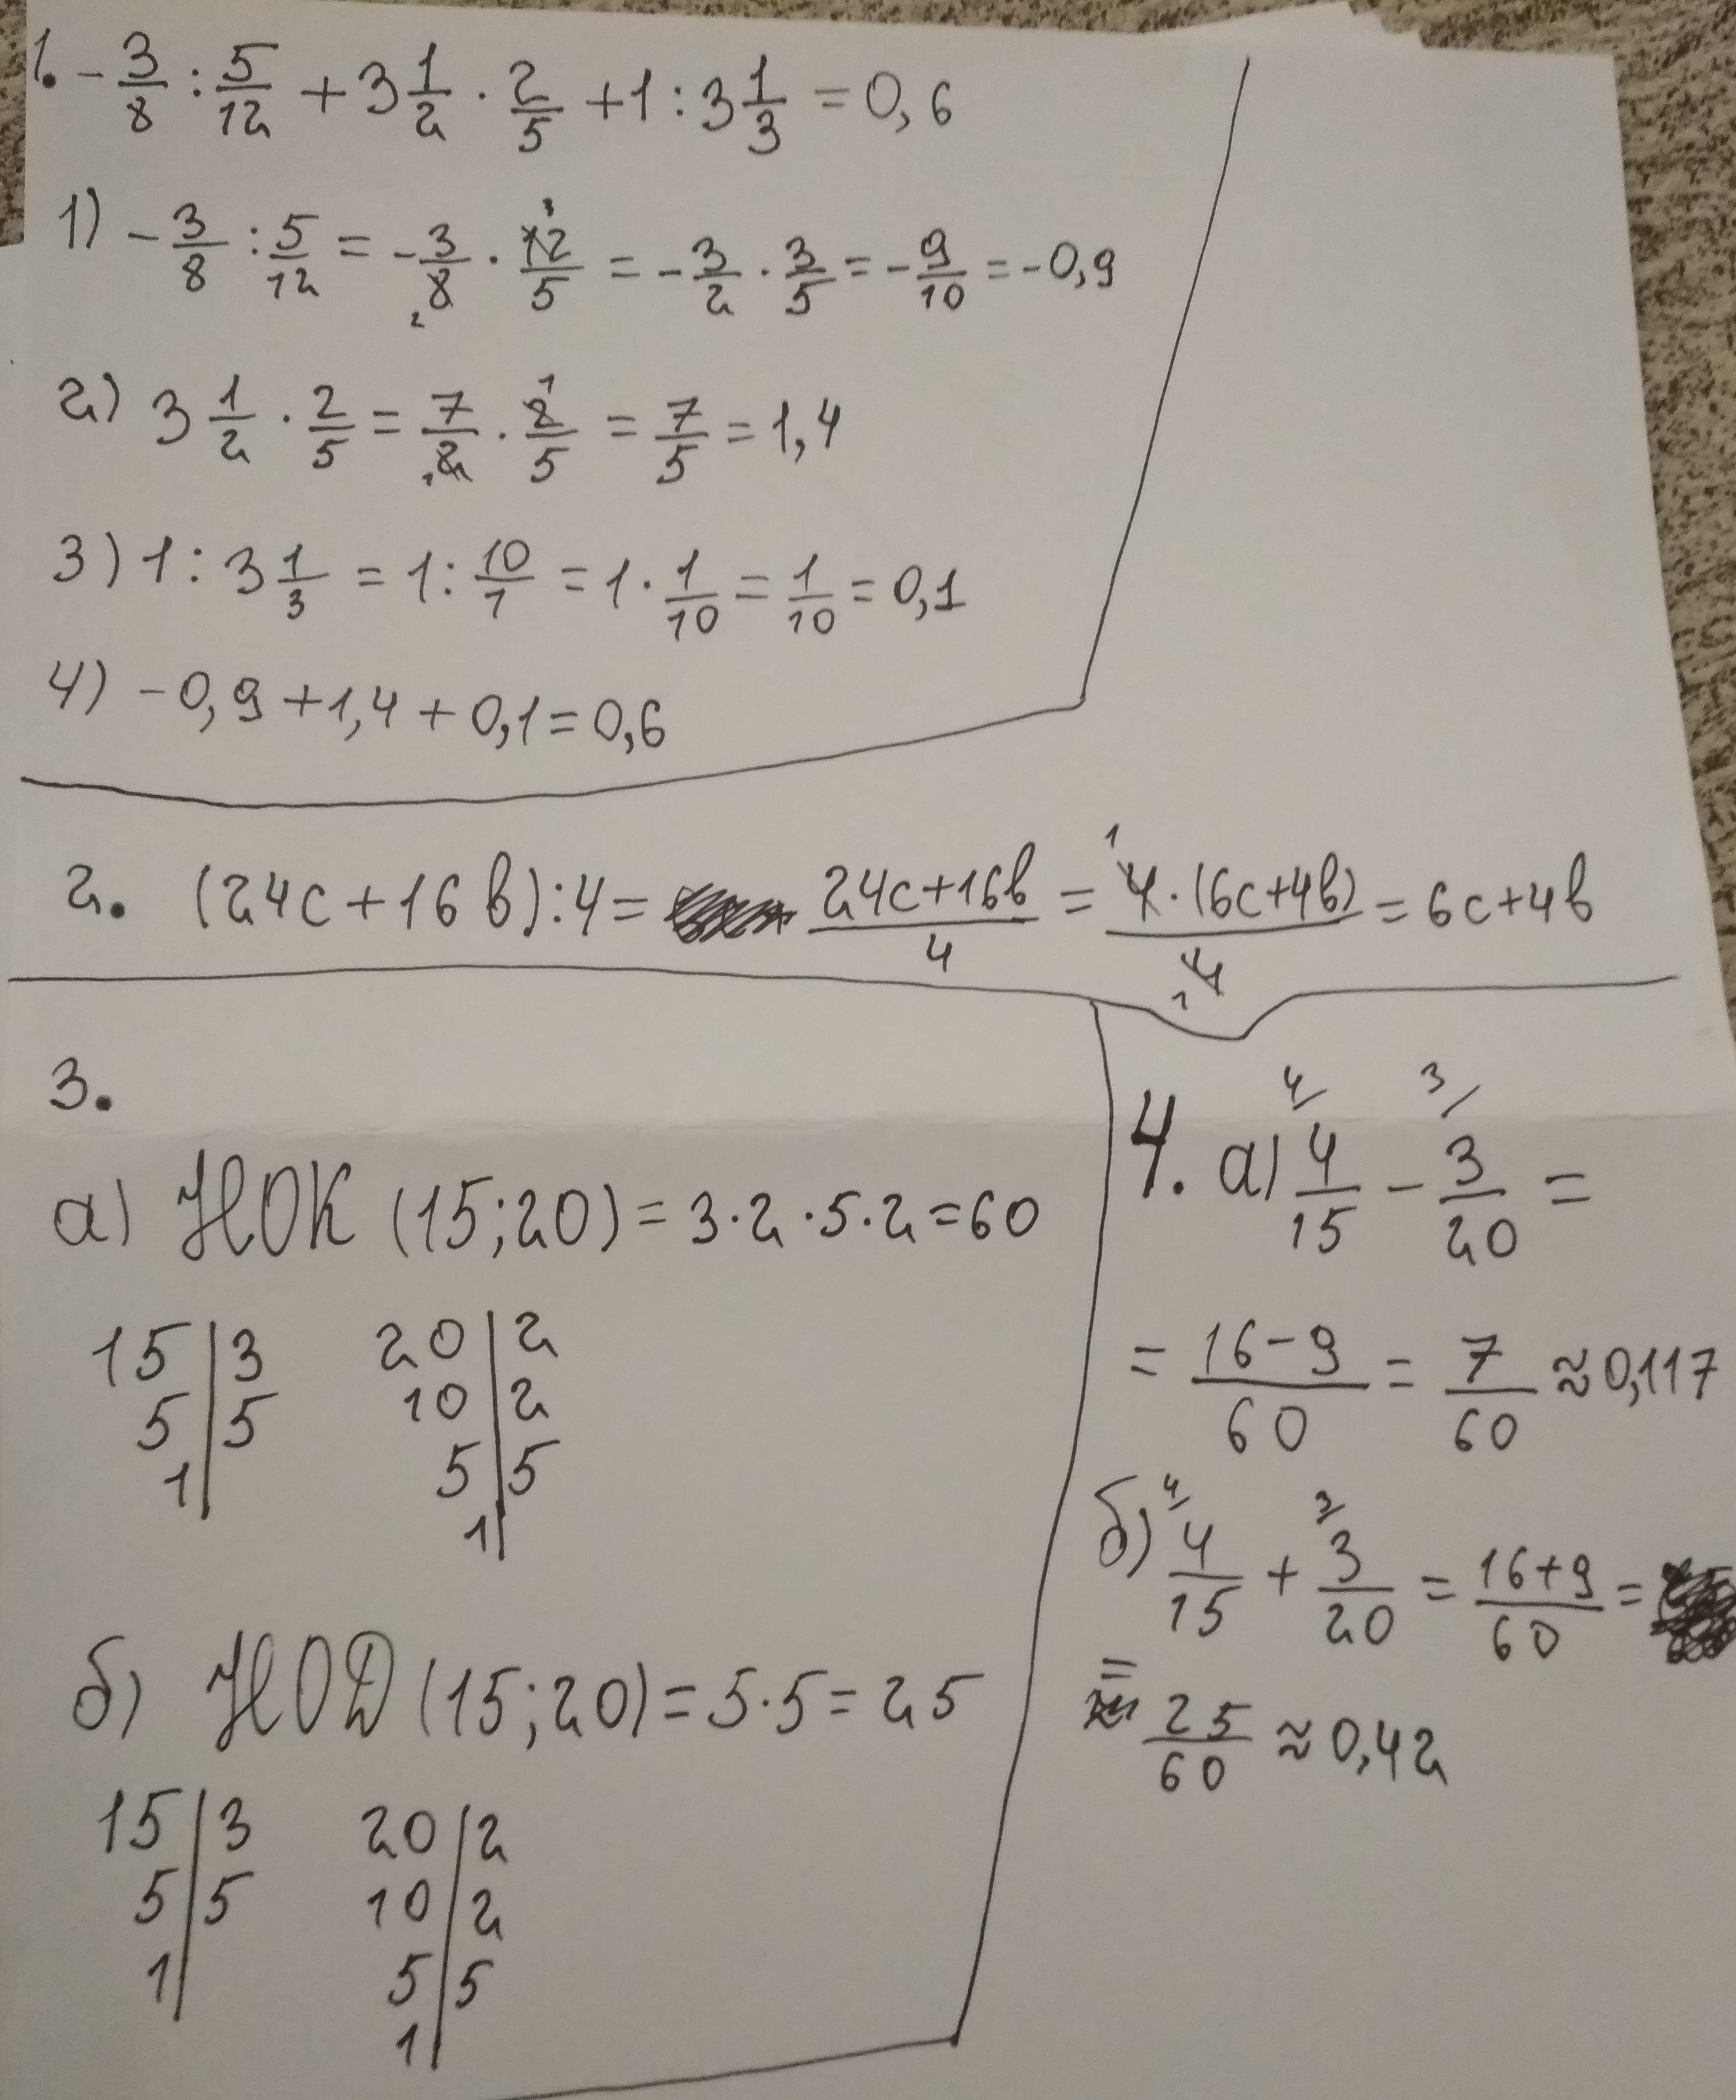 1. -3/8 : 5/12 + 3 1/2 · 2/5 + 1 : 3 1/3 = 0,6
1) -3/8 : 5/12 = -3/8 · 12/5 = -3/2 · 3/5 = -9/10 = -0,9
2) 3 1/2 · 2/5 = 7/2 · 2/5 = 7/5 = 1,4
3) 1 : 3 1/3 = 1 : 10/1 = 1 · 1/10 = 1/10 = 0,1
4) -0,9 + 1,4 + 0,1 = 0,6
2. (24с + 16в) : 4 = (24с+16в)/4 = 4·(6с+4в)/4 = 6с+4в
3.
а) НОК (15;20) = 3·2·5·2 = 60
15 | 3    20 | 2
5 | 5    10 | 2
1 |    5 | 5
1 |
б) НОД (15;20) = 5·5 = 25
15 | 3    20 | 2
5 | 5    10 | 2
1 |    5 | 5
1 |
4. а) 4/15 - 3/20 =
= (16-9)/60 = 7/60 ≈ 0,117
б) 4/15 + 3/20 = (16+9)/60 =
= 25/60 ≈ 0,42